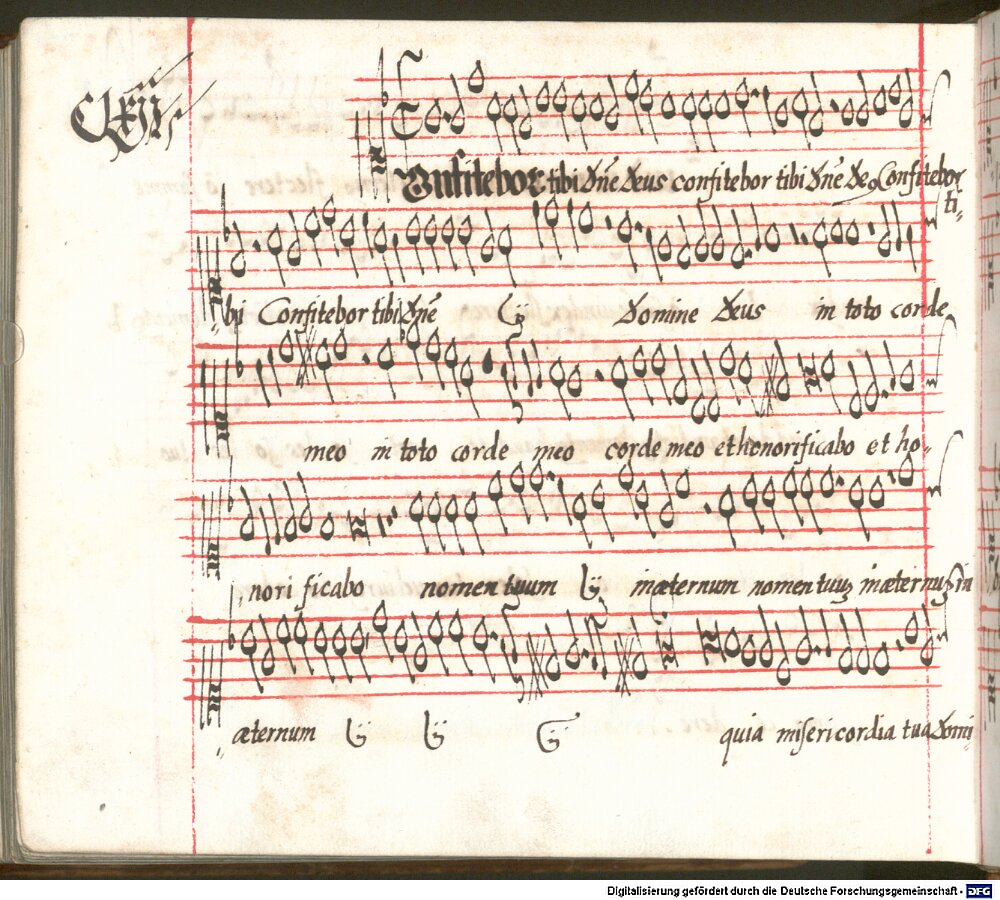 CLXII
Confitebor tibi dñe deus confitebor tibi dñe de9 Confitebor
ti-
bi Confitebor tibi dñe ij Domine deus in toto corde
meo in toto corde meo corde meo et honorificabo et ho-
nori ficabo nomen tuum ij in æternum nomen tuuȝ in æternuȝ in
æternum ij ij ij quia misericordia tua domi-
Digitalisierung gefördert durch die Deutsche Forschungsgemeinschaft - DFG